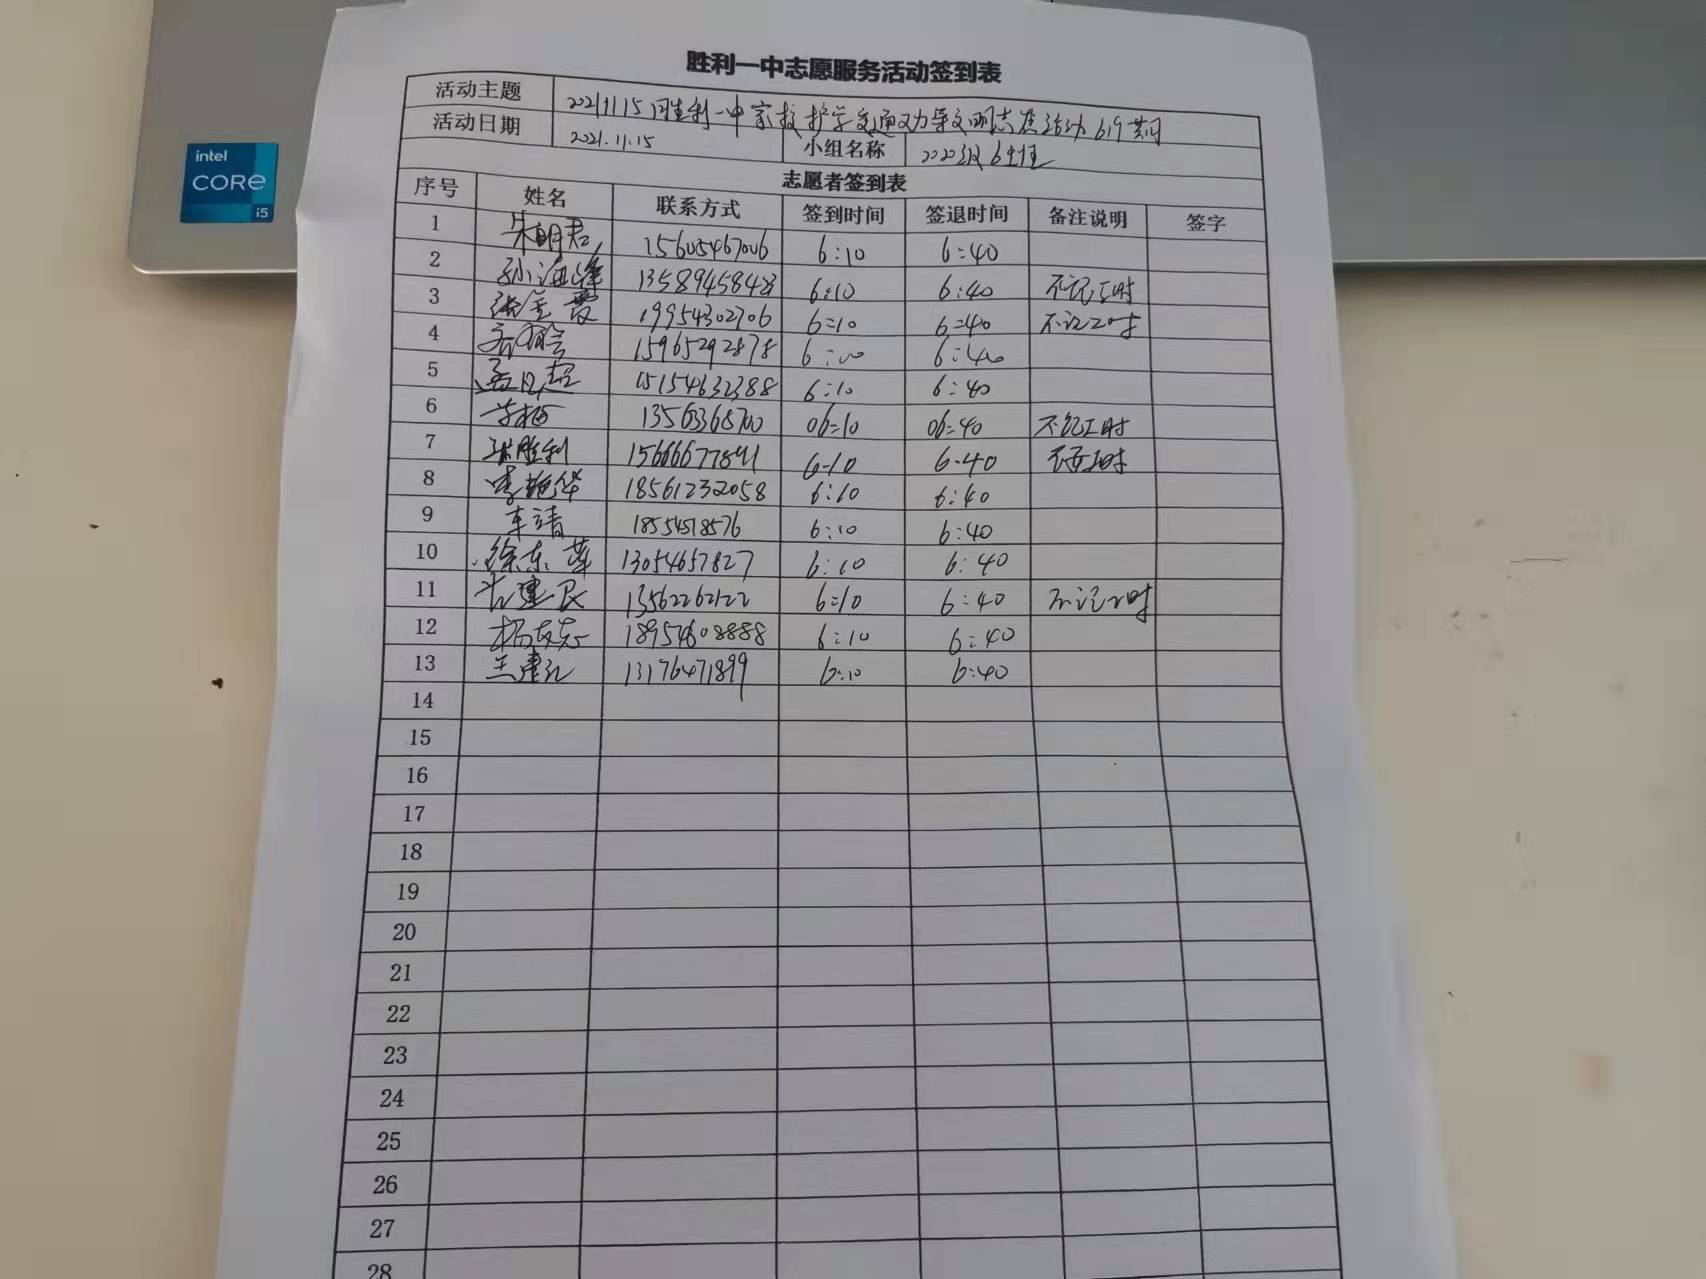 intel
CORE
i5
胜利一中志愿服务活动签到表
活动主题 20211115胜利一中家校护学交通劝导文明志愿活动619黄河
活动日期 2021.11.15 小组名称 2020级6班
志愿者签到表
序号 姓名 联系方式 签到时间 签退时间 备注说明 签字
1 朱明君 15605467006 6:10 6:40
2 孙海峰 6:10 6:40 不记工时
3 张金霞 19954302706 6:10 6:40 不记工时
4 15965292878 6:00 6:40
5 孟凡超 15154632388 6:10 6:40
6 13563368700 06:10 06:40 不记工时
7 张胜利 6-10 6-40
8 李艳华 18561232058 6:10 6:40
9 车靖 6:10 6:40
10 徐东萍 13054657827 6:10 6:40
11 13562262122 6:10 6:40 不记工时
12 18954608888 6:10 6:40
13 王建红 13176471899 6:10 6:40
14
15
16
17
18
19
20
21
22
23
24
25
26
27
28